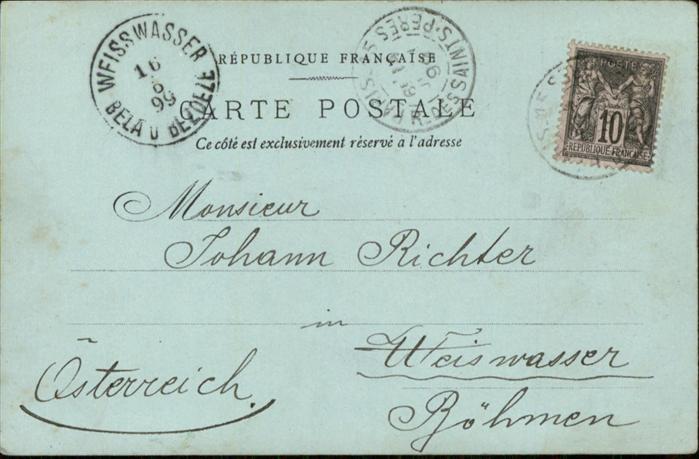 WEISSWASSER
16
99
BĚLÁ U BEZDĚZE
RÉPUBLIQUE FRANÇAISE
CARTE POSTALE
Ce côté est exclusivement réservé à l'adresse
POSTES
10
REPUBLIQUE FRANÇAISE
Monsieur
Johann Richter
in
Weiswasser
Österreich.
Böhmen